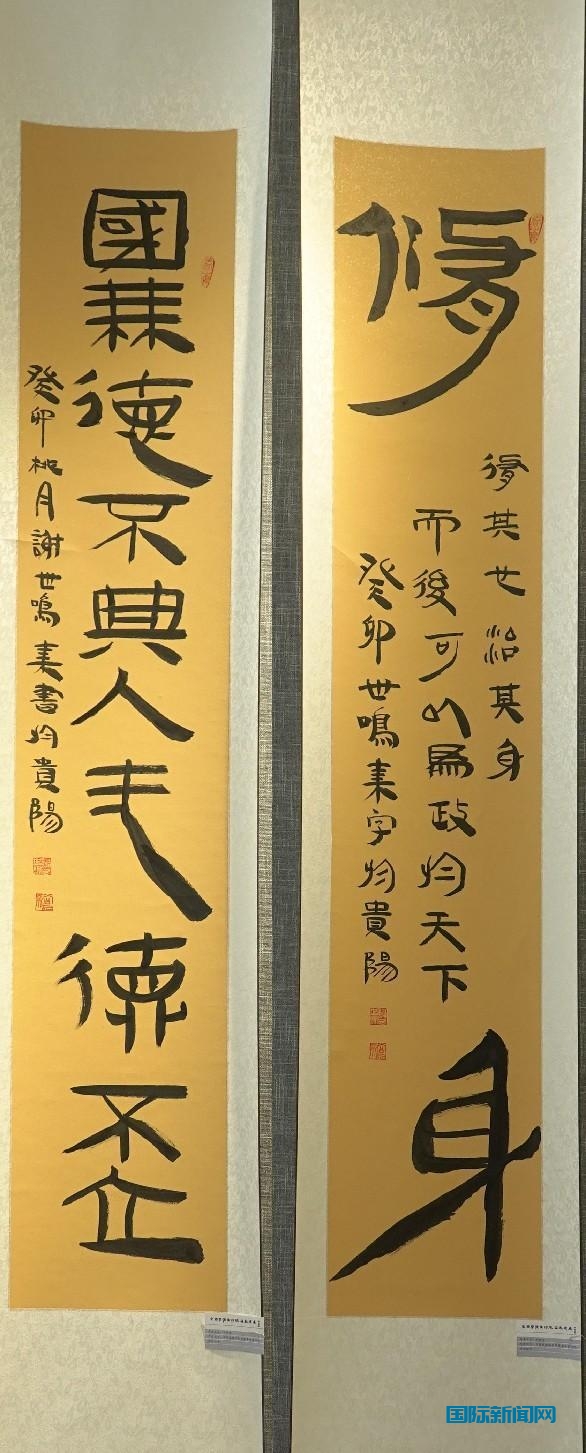 修身
修其心治其身
而後可以為政於天下
癸卯世鳴字於貴陽
國無德不興人无德不立
癸卯桃月謝世鳴書於貴陽
国际新闻网